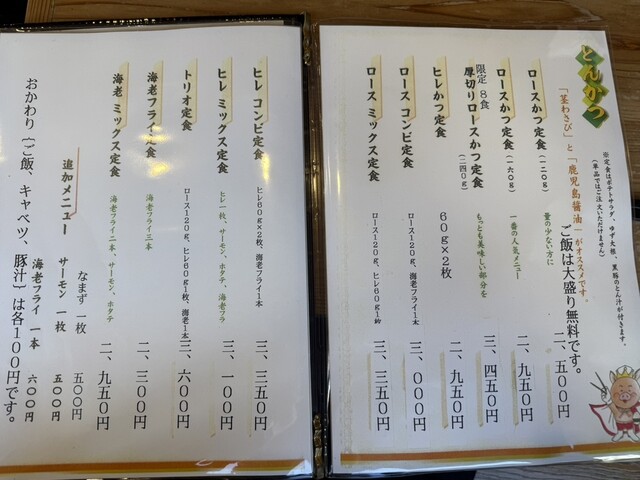 とんかつ
※定食はポテトサラダ、ゆず大根、黒豚のとん汁が付きます。
(単品ではご注文いただけません)
「茎わさび」と「鹿児島醤油」がオススメです。
ご飯は大盛り無料です。
ロースかつ定食(一二〇g) 量の少ない方に 二、五〇〇円
ロースかつ定食(一六〇g) 一番の人気メニュー 二、九五〇円
限定8食
厚切りロースかつ定食(二四〇g) もっとも美味しい部分を 三、四五〇円
ヒレかつ定食 60g×2枚 二、九五〇円
ロース コンビ定食 ロース120g、海老フライ1本 三、〇〇〇円
ロース ミックス定食 ロース120g、ヒレ60g1枚 三、三五〇円
ヒレ コンビ定食 ヒレ60g×2枚、海老フライ1本 三、三五〇円
ヒレ ミックス定食 ヒレ一枚、サーモン、ホタテ、海老フラ 三、一〇〇円
トリオ定食 ロース120g、ヒレ60g1枚、海老1本 三、六〇〇円
海老フライ定食 海老フライ三本 二、三〇〇円
海老 ミックス定食 海老フライ二本、サーモン、ホタテ 二、九五〇円
追加メニュー
なまず 一枚 五〇〇円
サーモン 一枚 五〇〇円
海老フライ 一本 六〇〇円
おかわり(ご飯、キャベツ、豚汁)は各100円です。